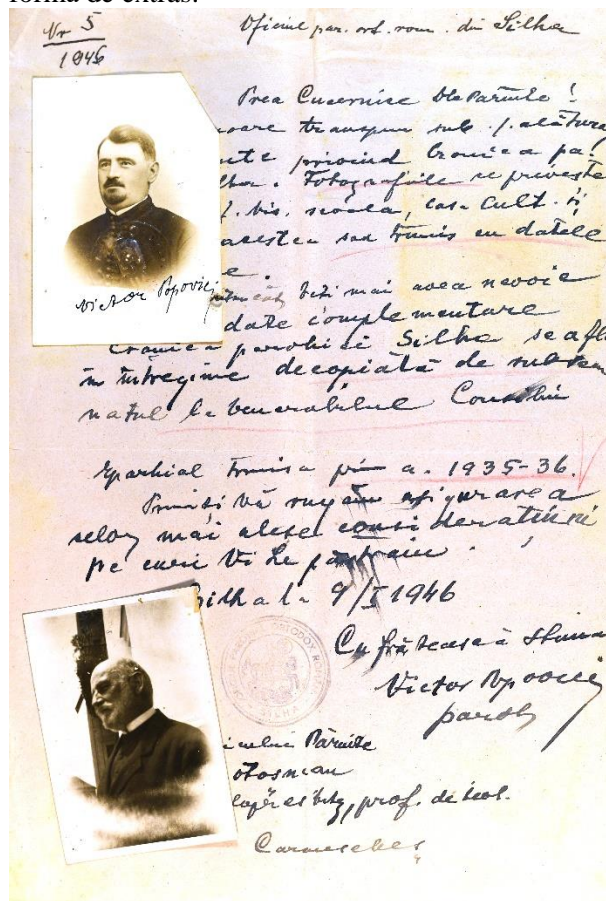 forma de extras.
Nr 5
1946
Oficiul par. ort. rom. din Silha
Prea Cucernice Ste Parinte !
transpun sub ./. alătura
privind Cronica pa-
Fotografiile ce privește
bis. scoala, casa Cult. și
acestea sau trimis cu datele
Victor Popovici
veți mai avea nevoie
date complementare
Cronica parohiei Silha se afl
în întregime decopiată de subsem
natul la venerabilul Consiliu
Eparhial trimisa prin a. 1935-36.
Primiți Vă rugăm asigurarea
celor mai alese considerațiuni
pe cari Vi le păstrăm.
Silha la 9/I 1946
Cu frățească stima
Victor Popovici
paroh
SILHA
Părinte
prof. de teol.
Caransebeș